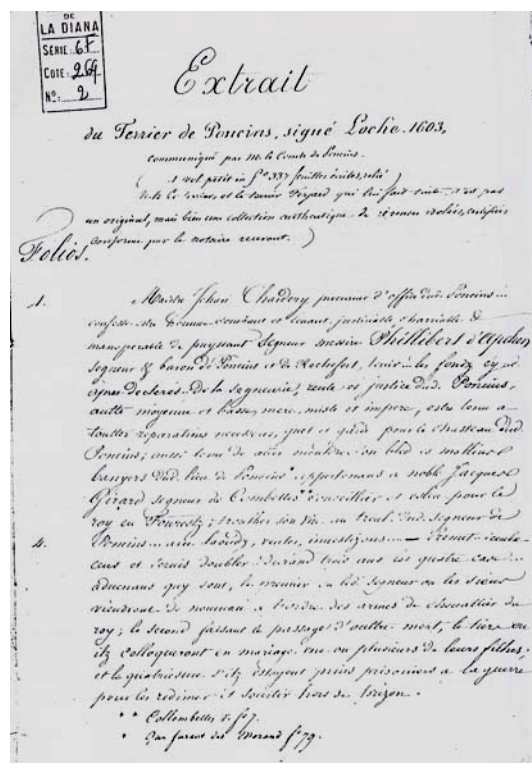 DE
LA DIANA
SÉRIE: 6F
COTE: 269
N°: 2
Extrait
du Terrier de Poncins, signé Loche. 1603,
communiqué par Mr le Comte de Poncins.
(1 vol. petit in f° 337 feuilles écrites, relié)
Ce terrier, et le terrier qui lui fait suite n'est pas
un original, mais bien une collection authentique de certifiés
conforme par le notaire recevant.)
Folios.
1. Maistre Jehan Chardery procureur d'office dud. Poncins...
confesse estre homme et tenant, justiciable &
de puyssant Segneur messire Phillibert d'Apchon
segneur & baron de Poncins et de Rochefort, tenir les fondz cy
declerés de la segneurie, rente et justice dud. Poncins,
aulte moyenne et basse, mere, miste et impere, estre tenu a
touttes réparations guet et garde pour le chasteau dud.
Poncins; aussi tenu de son bled es mollins
banyers dud. lieu de Poncins* appartenans a noble Jacques
Gérard segneur de Combelles** conseillier et esleu pour le
roy en Fourestz; son vin au treul dud. segneur de
4. Poncins... laoudz, ventes, investizons... —
cens et servis doubler durand trois ans es quatre cas...
advenans quy sont, le premier led. Segneur ou les siens
viendront de nouveau a l'ordre des armes de chevallier du
roy; le second faisant le passage d'oultre mert; le tiers ou
ilz colloqueront en mariage une ou plusieurs de leurs filhes;
et le quatriesme s'ilz estoyent prins prisoniers a la guerre
pour les redimer et sortir hors de prizon.
** Collombettes f° 7.
* Morand f° 79.